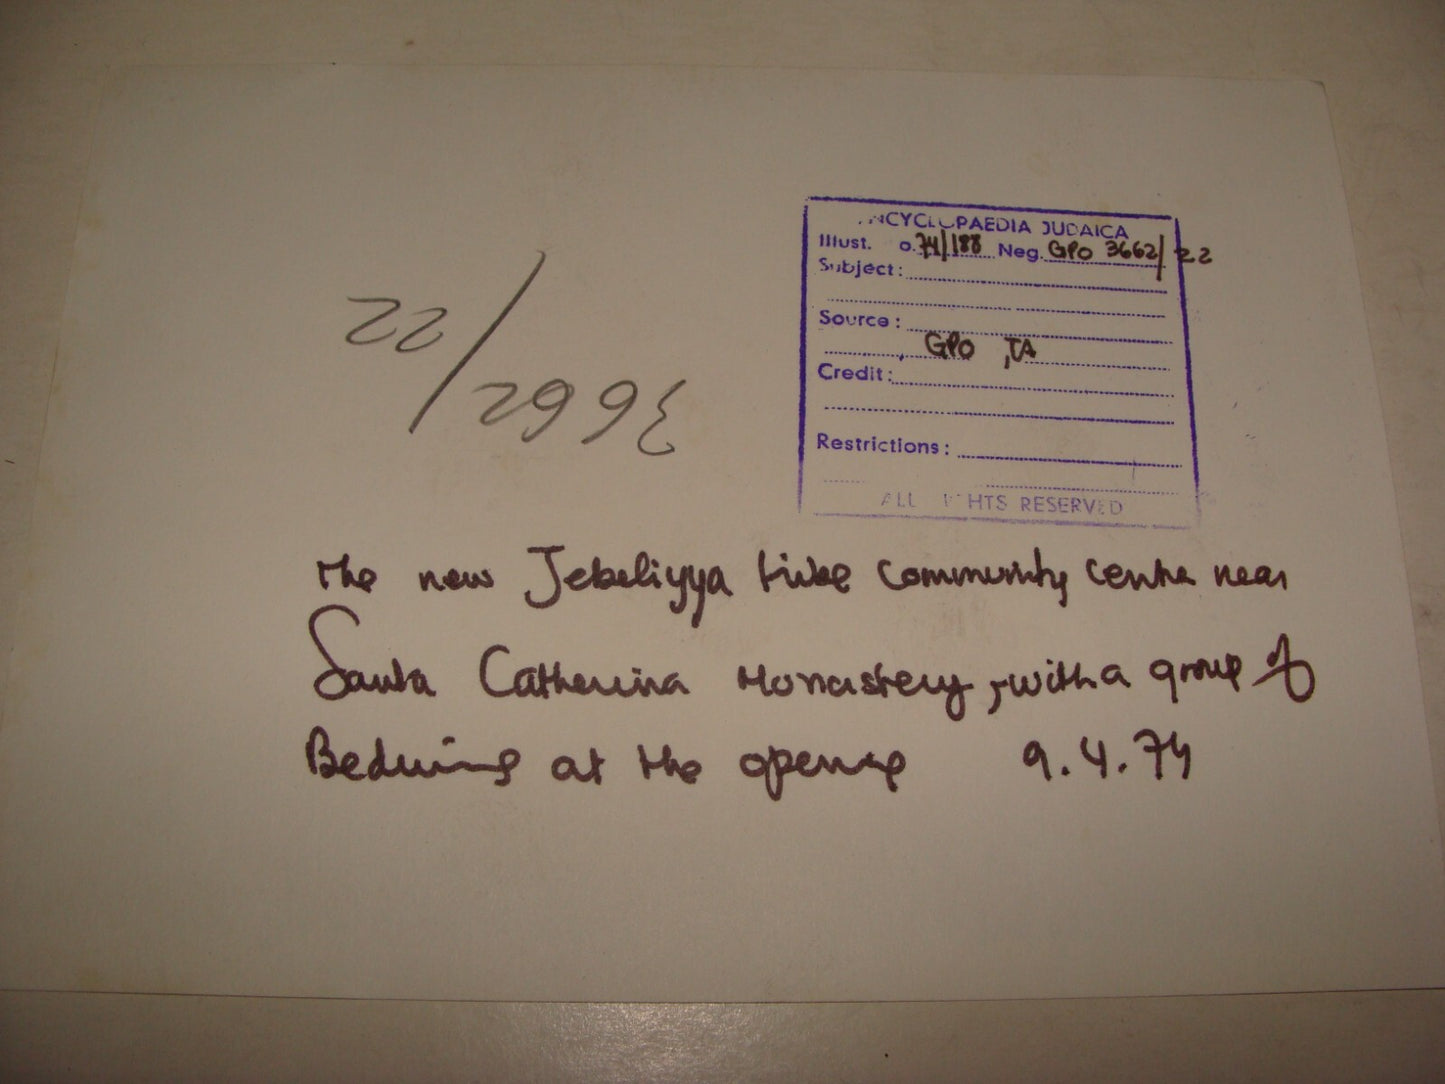 ENCYCLOPAEDIA JUDAICA
Illust. o. 74/188 Neg. GPO 3662/22
Subject:
Source:
GPO, TA
Credit:
Restrictions:
ALL RIGHTS RESERVED
3662/22
the new Jebeliyya tribe community centre near
Santa Catherina Monastery, with a group of
Beduins at the opening 9.4.74